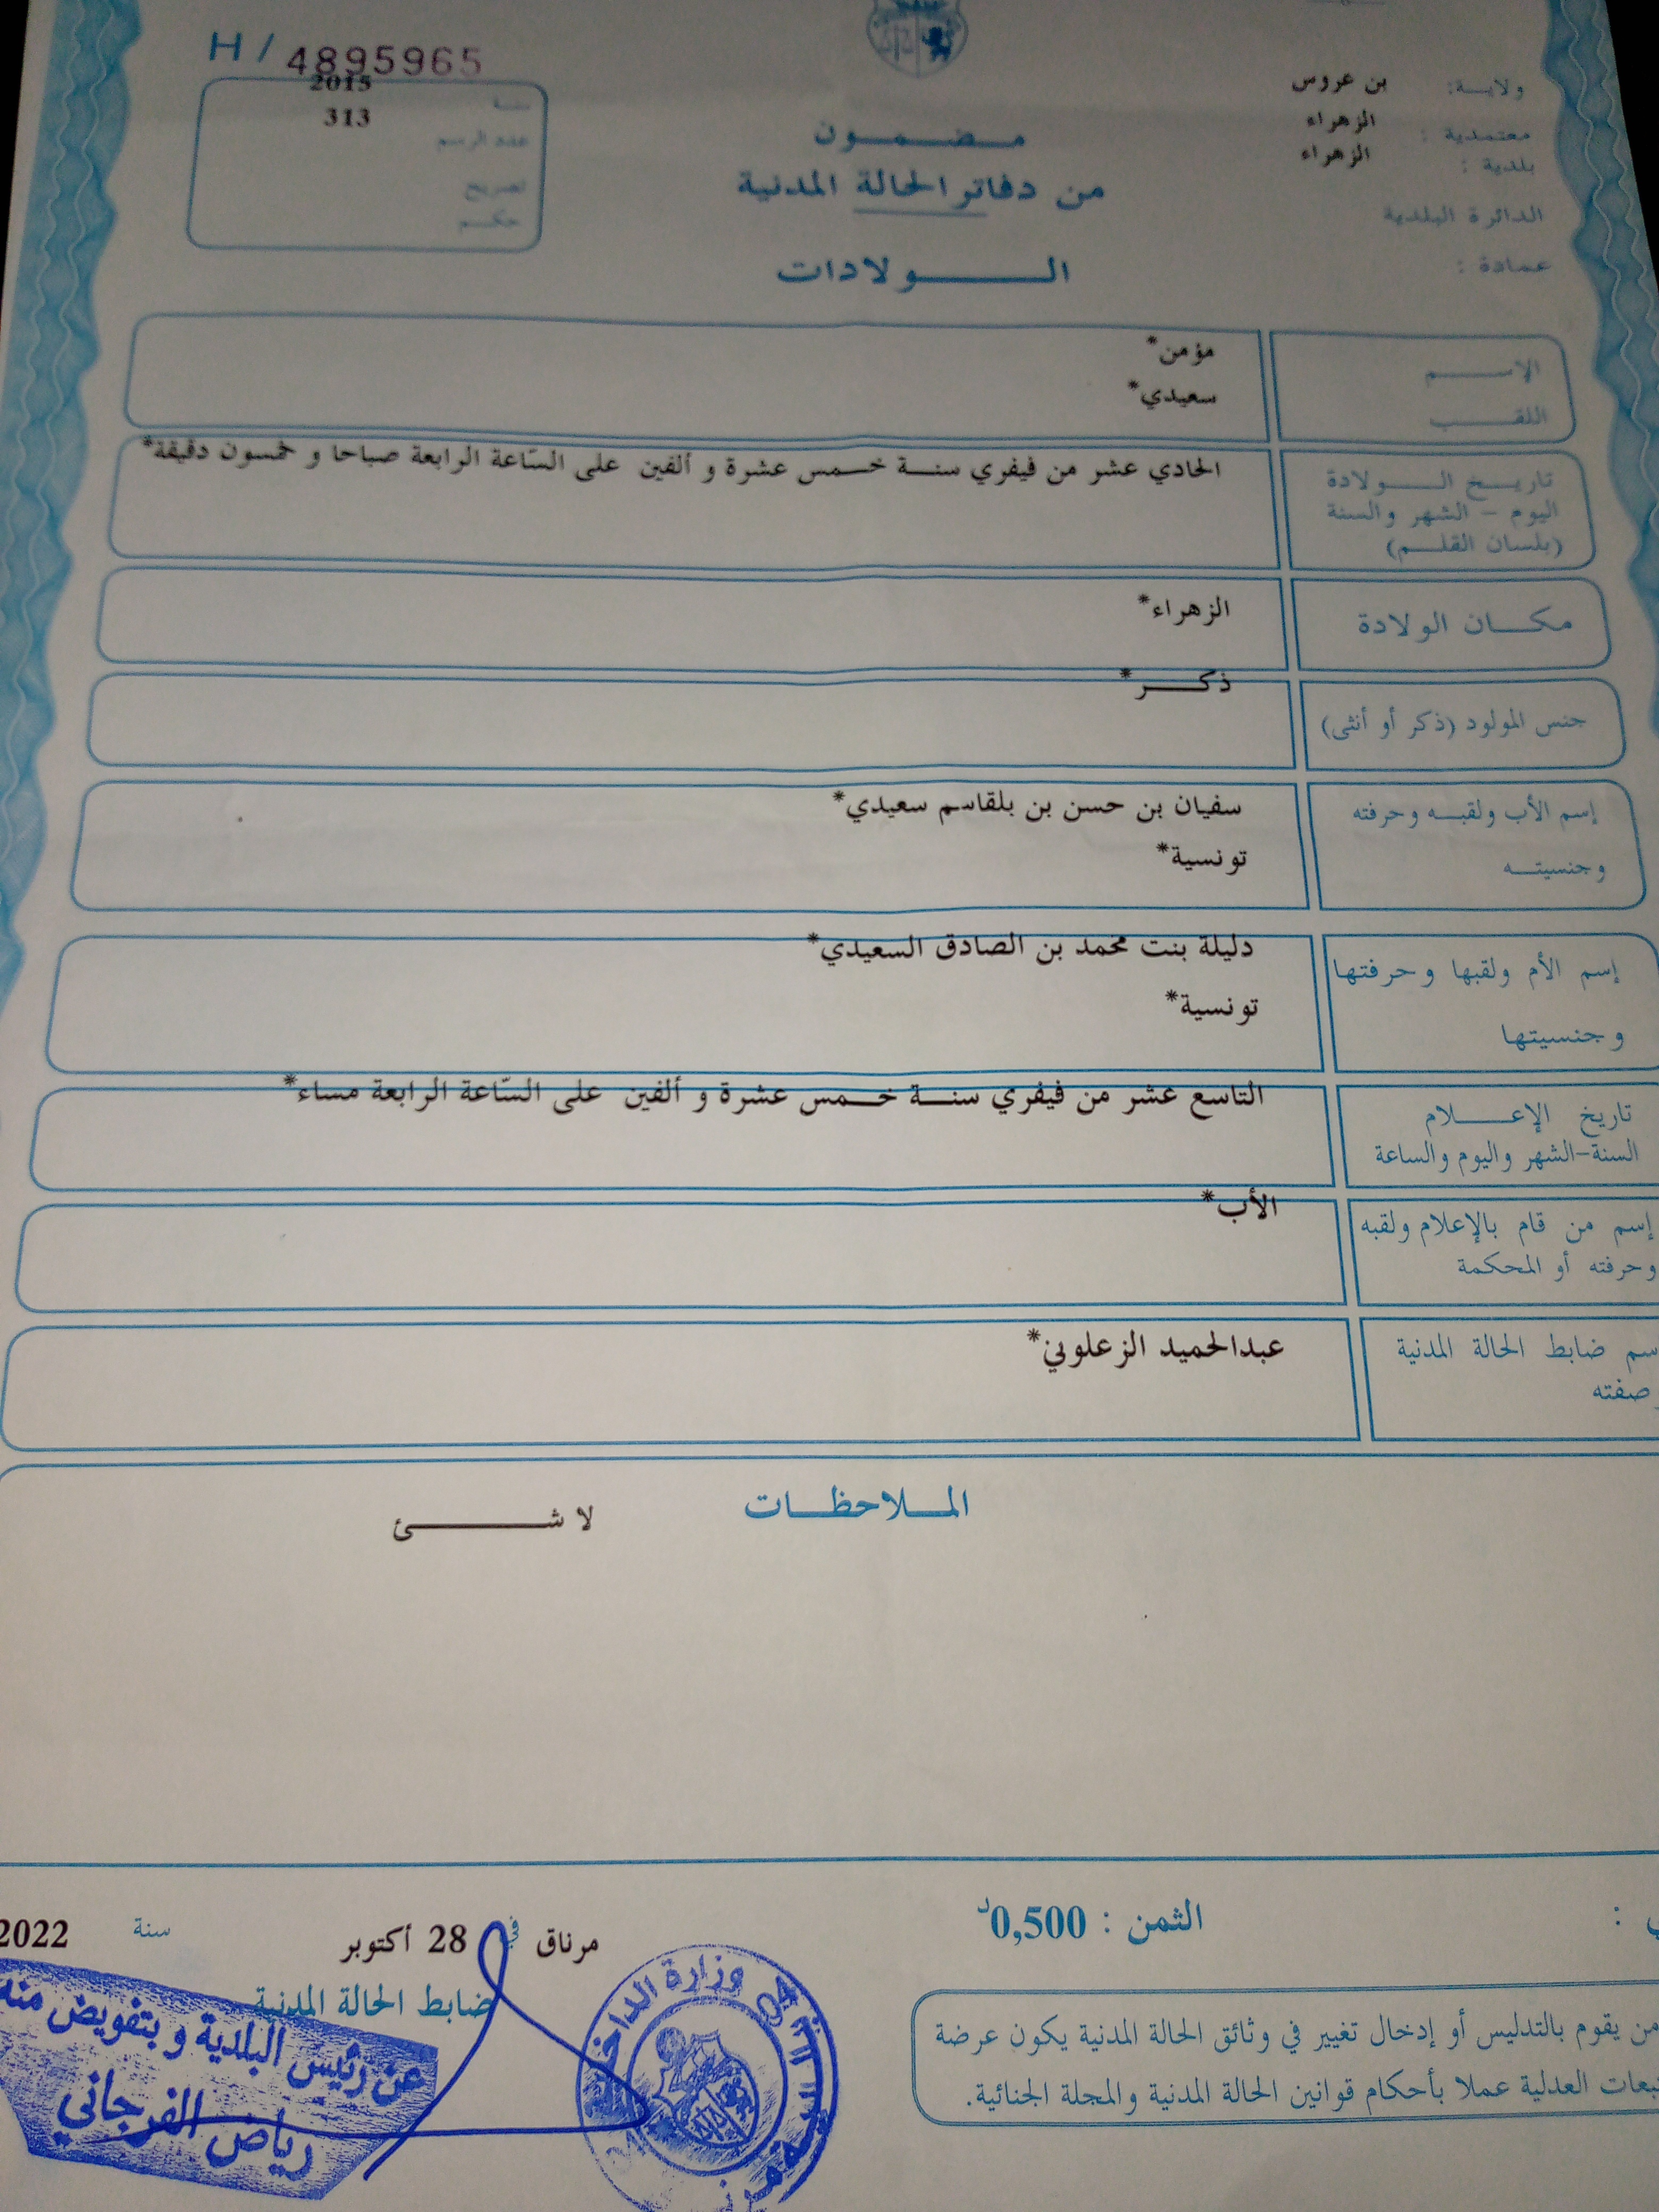 H / 4895965
ولايـــة: بن عروس
معتمدية : الزهراء
بلدية : الزهراء
الدائرة البلدية
عمادة :
سنة 2015
عدد الرسم 313
تصريح
حكم
مـضـمـون
من دفاتر الحالة المدنية
الـولادات
الاسم مؤمن*
اللقب سعيدي*
تاريخ الولادة
اليوم - الشهر والسنة
(بلسان القلم)
الحادي عشر من فيفري سنة خمس عشرة و ألفين على السّاعة الرابعة صباحا و خمسون دقيقة*
مكان الولادة الزهراء*
جنس المولود (ذكر أو أنثى) ذكر*
إسم الأب ولقبه وحرفته سفيان بن حسن بن بلقاسم سعيدي*
وجنسيته تونسية*
إسم الأم ولقبها وحرفتها دليلة بنت محمد بن الصادق السعيدي*
وجنسيتها تونسية*
تاريخ الإعلام التاسع عشر من فيفري سنة خمس عشرة و ألفين على السّاعة الرابعة مساء*
السنة-الشهر واليوم والساعة
إسم من قام بالإعلام ولقبه الأب*
وحرفته أو المحكمة
سم ضابط الحالة المدنية عبدالحميد الزعلوني*
صفته
الملاحظات
لا شئ
الثمن : 0,500د
مرناق في 28 أكتوبر سنة 2022
ضابط الحالة المدنية
عن رئيس البلدية و بتفويض منه
رياض الفرجاني
وزارة الداخلية
04
من يقوم بالتدليس أو إدخال تغيير في وثائق الحالة المدنية يكون عرضة
تبعات العدلية عملا بأحكام قوانين الحالة المدنية والمجلة الجنائية.